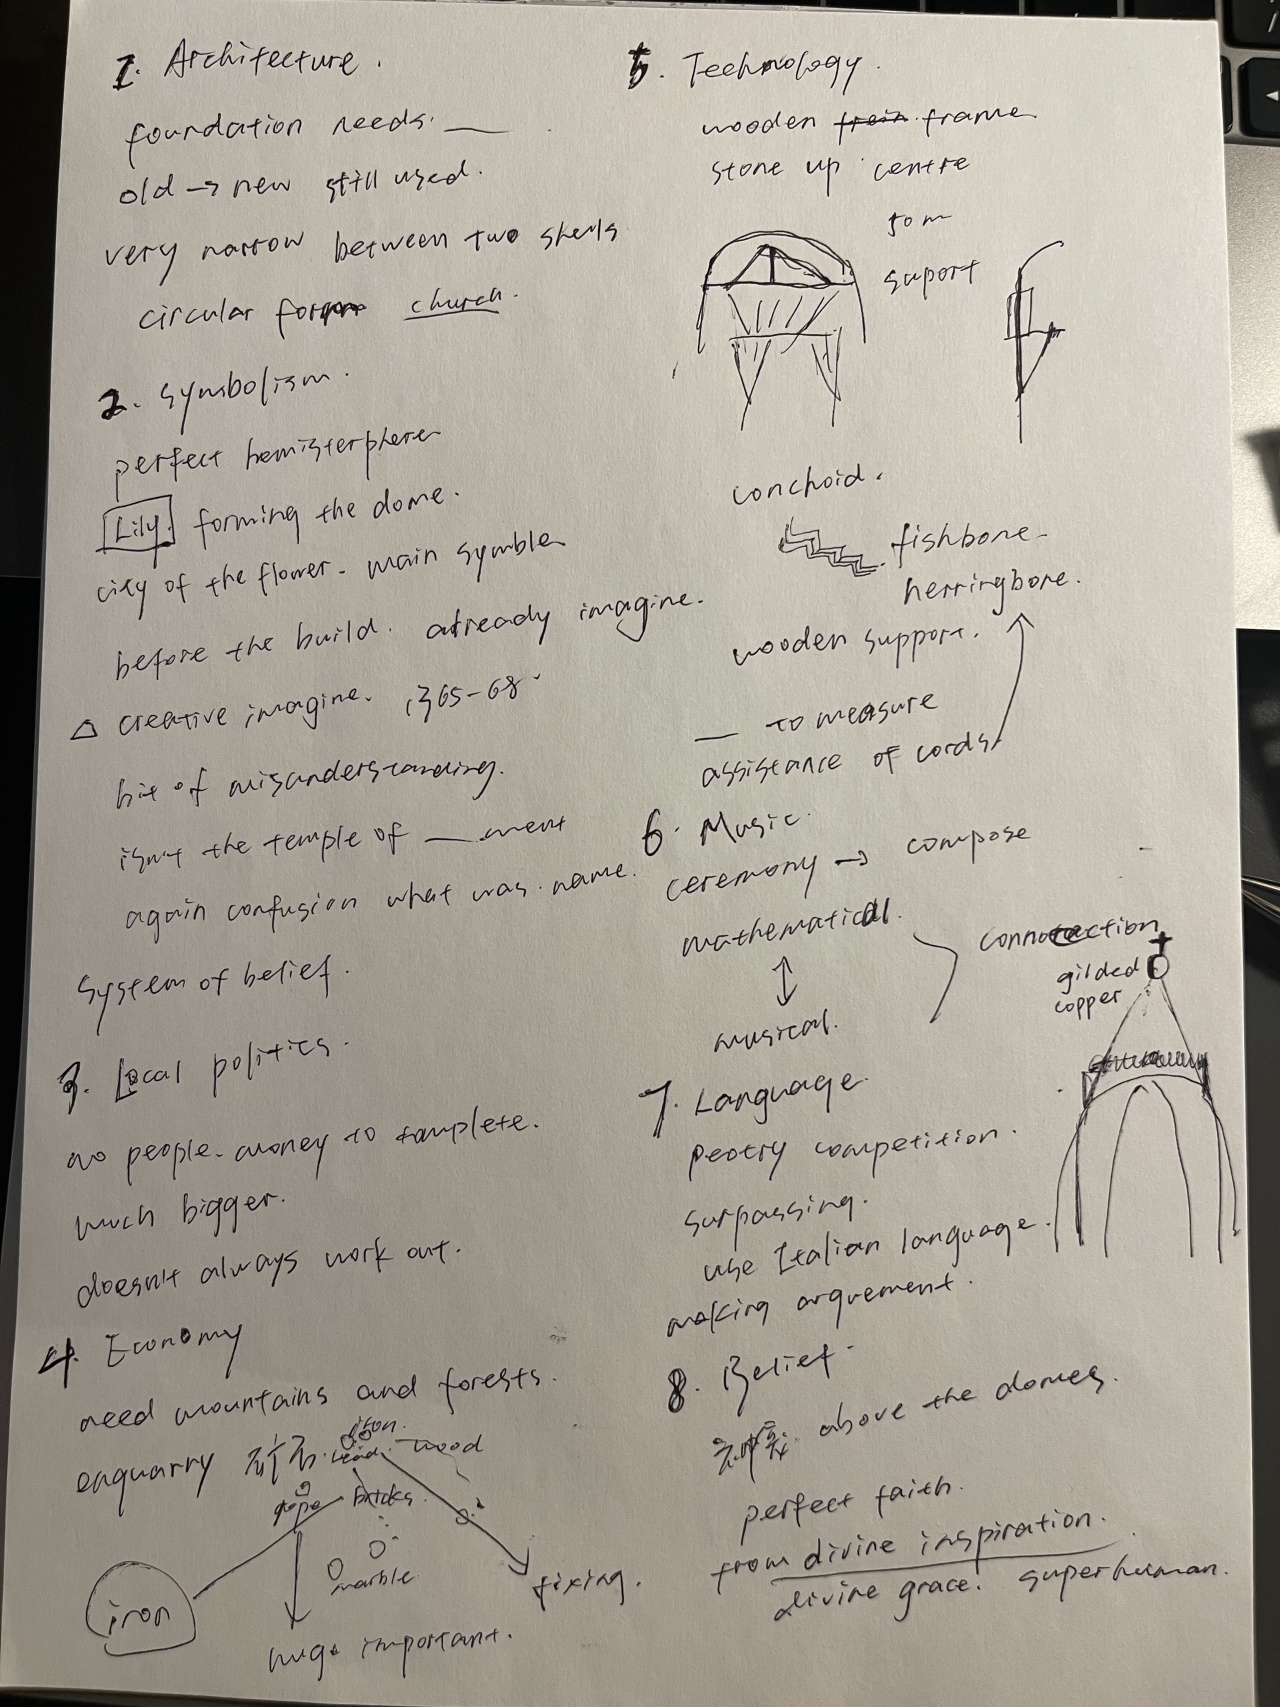 1. Architecture.
foundation needs. __
old → new still used.
very narrow between two shells
circular form church.
2. Symbolism.
perfect hemisterphere
Lily. forming the dome.
city of the flower. main symble
before the build. already imagine.
△ creative imagine. 1365-68.
bit of misunderstanding.
isn't the temple of __ment
again confusion what was. name.
System of belief.
3. Local politics.
no people. money to complete.
much bigger.
doesn't always work out.
4. Economy
need mountains and forests.
enquarry
iron.
Lead. wood
rope bricks.
marble
fixing.
iron
huge important.
5. Technology.
wooden frame
stone up centre
50m
suport
conchoid.
fishbone
herringbone.
wooden support.
__ to measure
assistance of cords.
6. Music.
ceremony → compose
mathematical.
↕
musical.
connection
gilded
copper
7. Language.
peotry competition.
surpassing.
use Italian language.
making arguement.
8. Belief.
above the domes.
perfect faith.
from divine inspiration.
divine grace. superhuman.